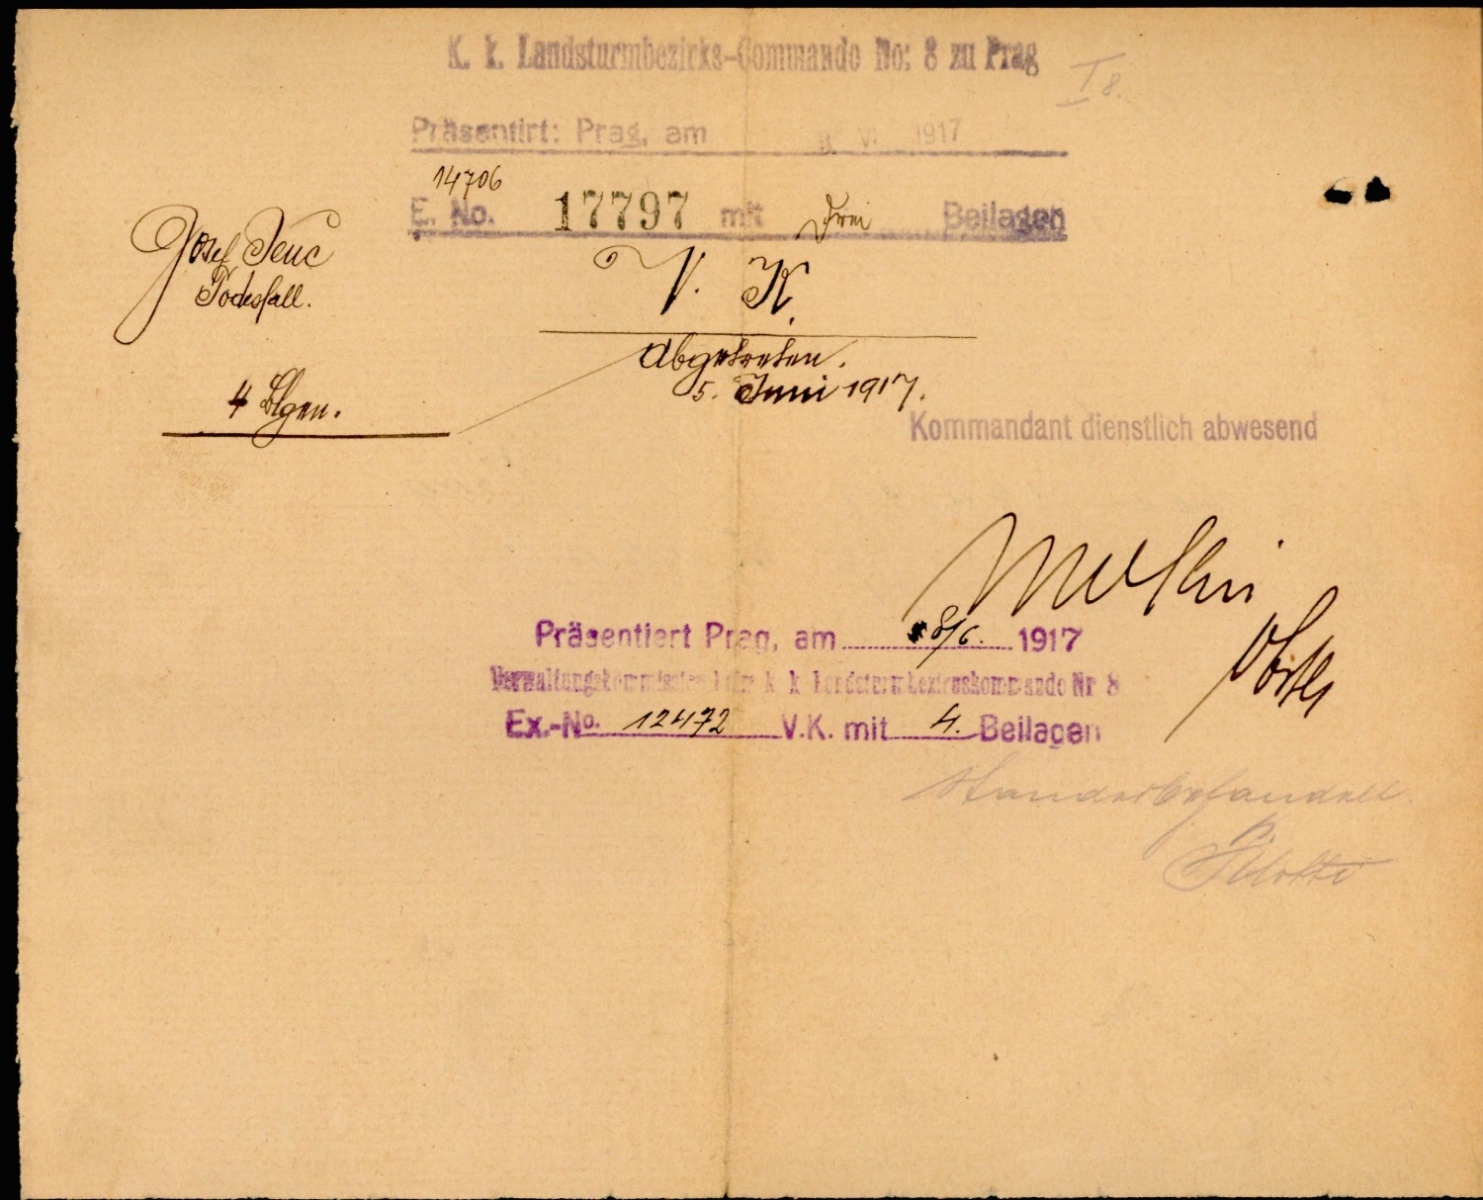 K. k. Landsturmbezirks-Commando No: 8 zu Prag
I 8.
Präsentirt: Prag, am VI. 1917
14706
E. No. 17797 mit drei Beilagen
Josef
Todesfall.
V. K.
abgetreten.
5. Juni 1917.
4 Blgen.
Kommandant dienstlich abwesend
Präsentiert Prag, am 8/6. 1917
Verwaltungskommission des k. k. Landsturmbezirkskommando Nr 8
Ex.-No. 12472 V.K. mit 4. Beilagen
Obstlt